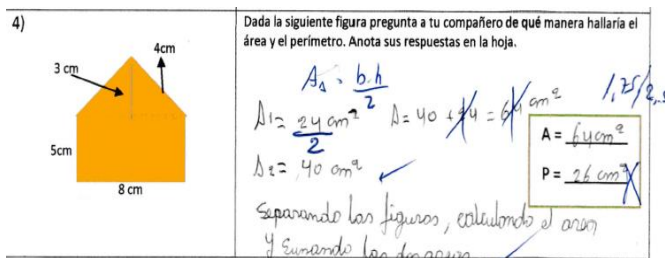 4)
Dada la siguiente figura pregunta a tu compañero de qué manera hallaría el
área y el perímetro. Anota sus respuestas en la hoja.
4cm
3 cm
5cm
8 cm
A△ = b.h/2
A1 = 24 cm²/2 A = 40 + 24 = 64 cm²
1,75/2,
A2 = 40 cm²
A = 64cm²
P = 26 cm²
Separando las figuras, calculando el area
y sumando las dos areas